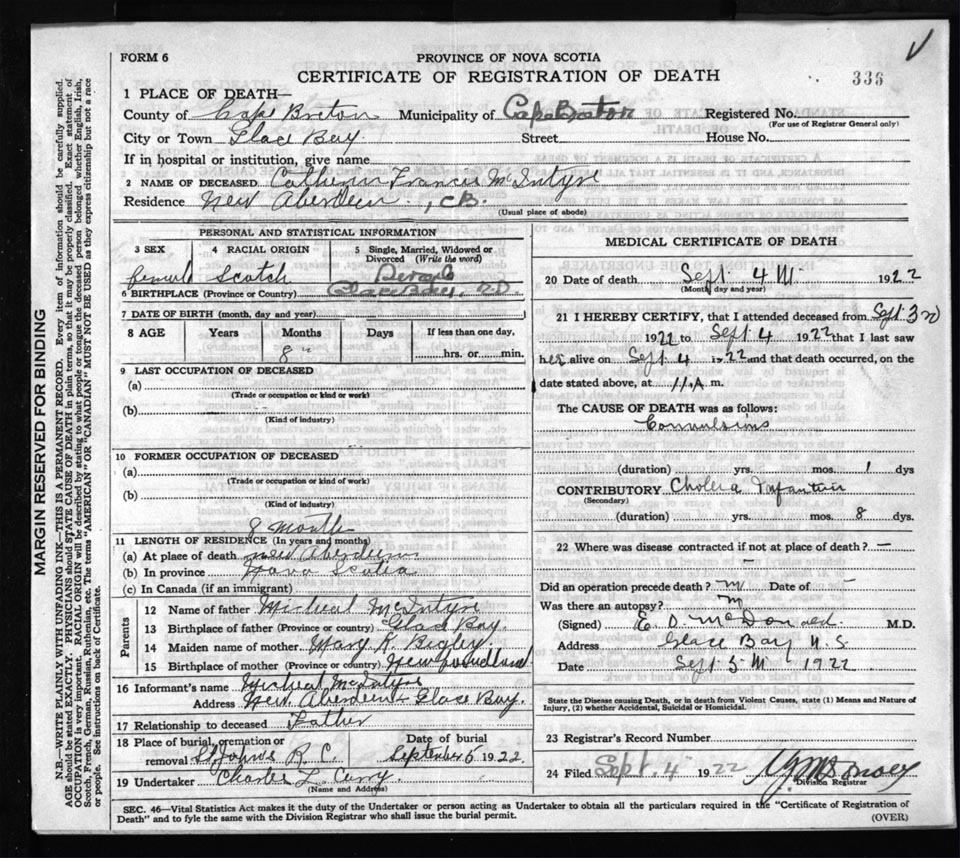 FORM 6
PROVINCE OF NOVA SCOTIA
CERTIFICATE OF REGISTRATION OF DEATH
336
1 PLACE OF DEATH—
County of Cape Breton Municipality of Cape Breton Registered No.
(For use of Registrar General only)
City or Town Glace Bay Street House No.
If in hospital or institution, give name
2 NAME OF DECEASED Catherin Francis McIntyre
Residence New Aberdeen, C.B.
(Usual place of abode)
PERSONAL AND STATISTICAL INFORMATION
3 SEX 4 RACIAL ORIGIN 5 Single, Married, Widowed or Divorced (Write the word)
Scotch
6 BIRTHPLACE (Province or Country) Glace Bay,
7 DATE OF BIRTH (month, day and year)
8 AGE Years Months Days If less than one day,
8
hrs. or min.
9 LAST OCCUPATION OF DECEASED
(a)
(Trade or occupation or kind or work)
(b)
(Kind of industry)
10 FORMER OCCUPATION OF DECEASED
(a)
(Trade or occupation or kind of work)
(b)
(Kind of industry)
8 months
11 LENGTH OF RESIDENCE (In years and months)
(a) At place of death New Aberdeen
(b) In province Nova Scotia
(c) In Canada (if an immigrant)
Parents
12 Name of father Micheal McIntyre
13 Birthplace of father (Province or country) Glace Bay.
14 Maiden name of mother Mary K.
15 Birthplace of mother (Province or country) Newfoundland
16 Informant's name Micheal McIntyre
Address New Aberdeen Glace Bay.
17 Relationship to deceased Father
18 Place of burial, cremation or removal St Johns R. C. Date of burial September 5 1922
19 Undertaker Charles L. Curry
(Name and Address)
MEDICAL CERTIFICATE OF DEATH
20 Date of death Sept. 4 1922
(Month, day and year)
21 I HEREBY CERTIFY, that I attended deceased from Sept 3
1922 to Sept 4 1922 that I last saw
her alive on Sept 4 1922 and that death occurred, on the
date stated above, at 11 A m.
The CAUSE OF DEATH was as follows:
Convulsions
(duration) yrs. mos. 1 dys
CONTRIBUTORY Cholera Infantum
(Secondary)
(duration) yrs. mos. 8 dys.
22 Where was disease contracted if not at place of death? —
Did an operation precede death? Date of —
Was there an autopsy?
(Signed) E. O. McDonald M.D.
Address Glace Bay N. S
Date Sept 5 1922
State the Disease causing Death, or in death from Violent Causes, state (1) Means and Nature of Injury, (2) whether Accidental, Suicidal or Homicidal.
23 Registrar's Record Number
24 Filed Sept. 4 1922
Division Registrar
SEC. 46—Vital Statistics Act makes it the duty of the Undertaker or person acting as Undertaker to obtain all the particulars required in the "Certificate of Registration of
Death" and to fyle the same with the Division Registrar who shall issue the burial permit. (OVER)
MARGIN RESERVED FOR BINDING
N.B.—WRITE PLAINLY WITH UNFADING INK—THIS IS A PERMANENT RECORD. Every item of information should be carefully supplied.
AGE should be stated EXACTLY. PHYSICIANS should STATE CAUSE OF DEATH in plain terms, so that it may be properly classified. Exact statement of
OCCUPATION is very important. RACIAL ORIGIN will be described by stating to what people or tongue the deceased person belonged whether English, Irish,
Scotch, French, German, Russian, Ruthenian, etc. The terms "AMERICAN" or "CANADIAN" MUST NOT BE USED as they express citizenship but not a race
or people. See instructions on back of Certificate.